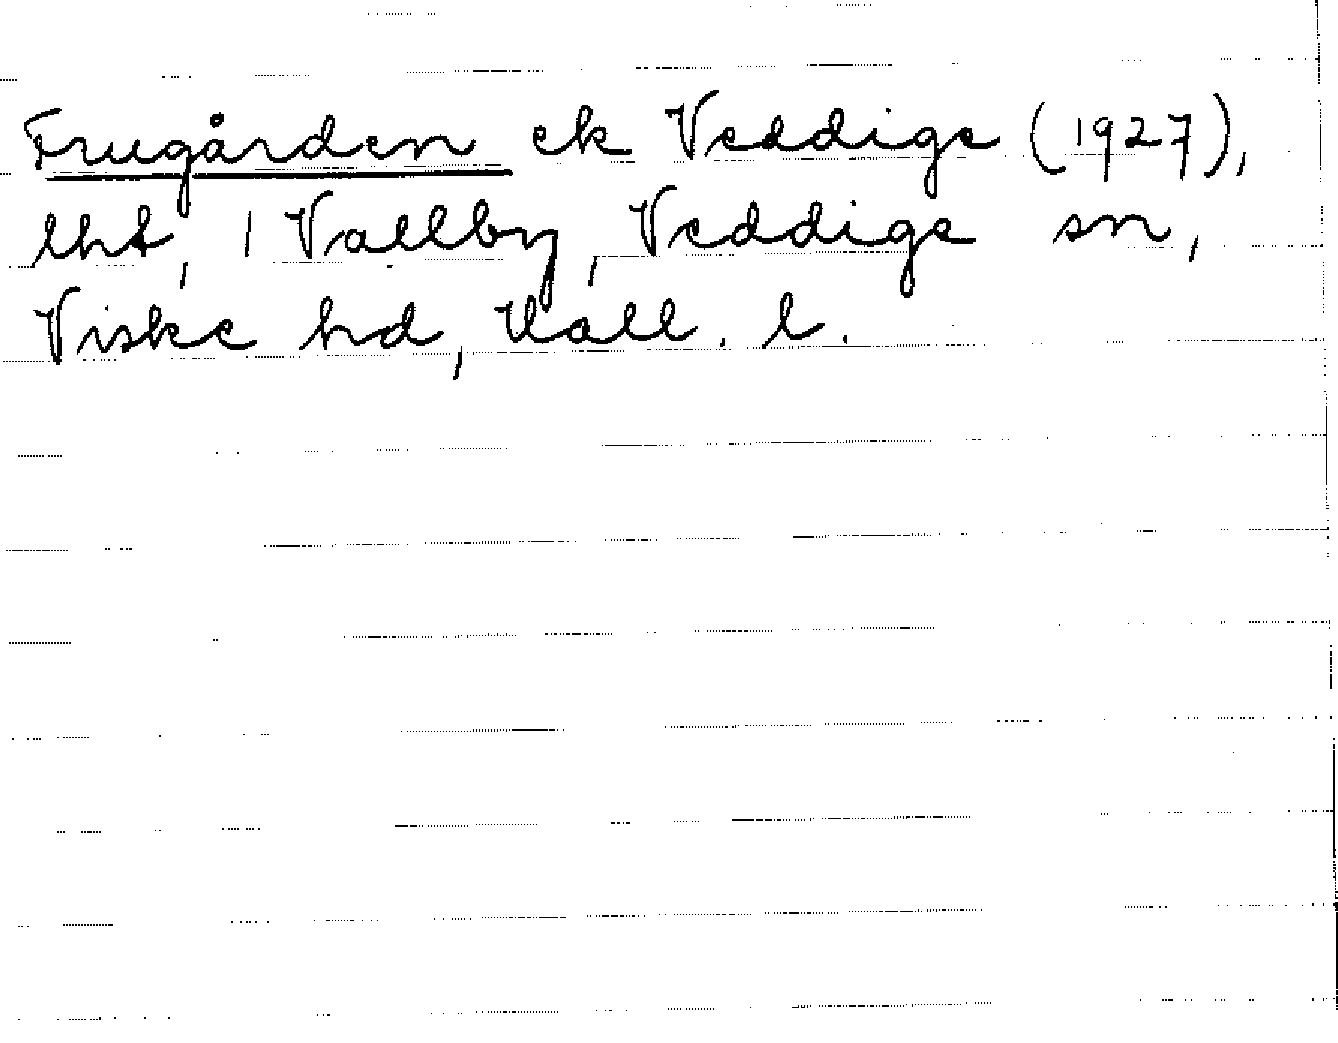 Frugården ek Veddige (1927),
lht, 1 Vallby, Veddige sn,
Viske hd, Hall. l.